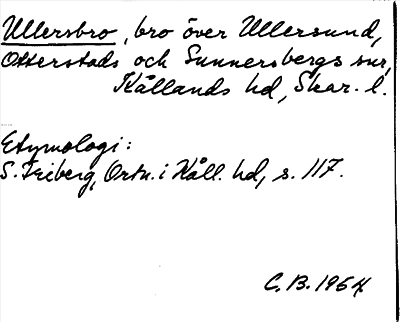 Ullersbro, bro över Ullersund,
Otterstads och Sunnersbergs snr,
Kållands hd, Skar. l.
Etymologi:
S. Feiberg, Ortn. i Kåll. hd, s. 117.
C.B. 1964